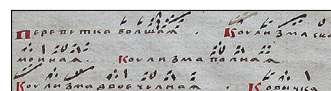 Перепетка болшая. Коулизма ско
моинаꙗ. Коулизма полнаꙗ.
Коулизма двоечелнаꙗ. Ковычка